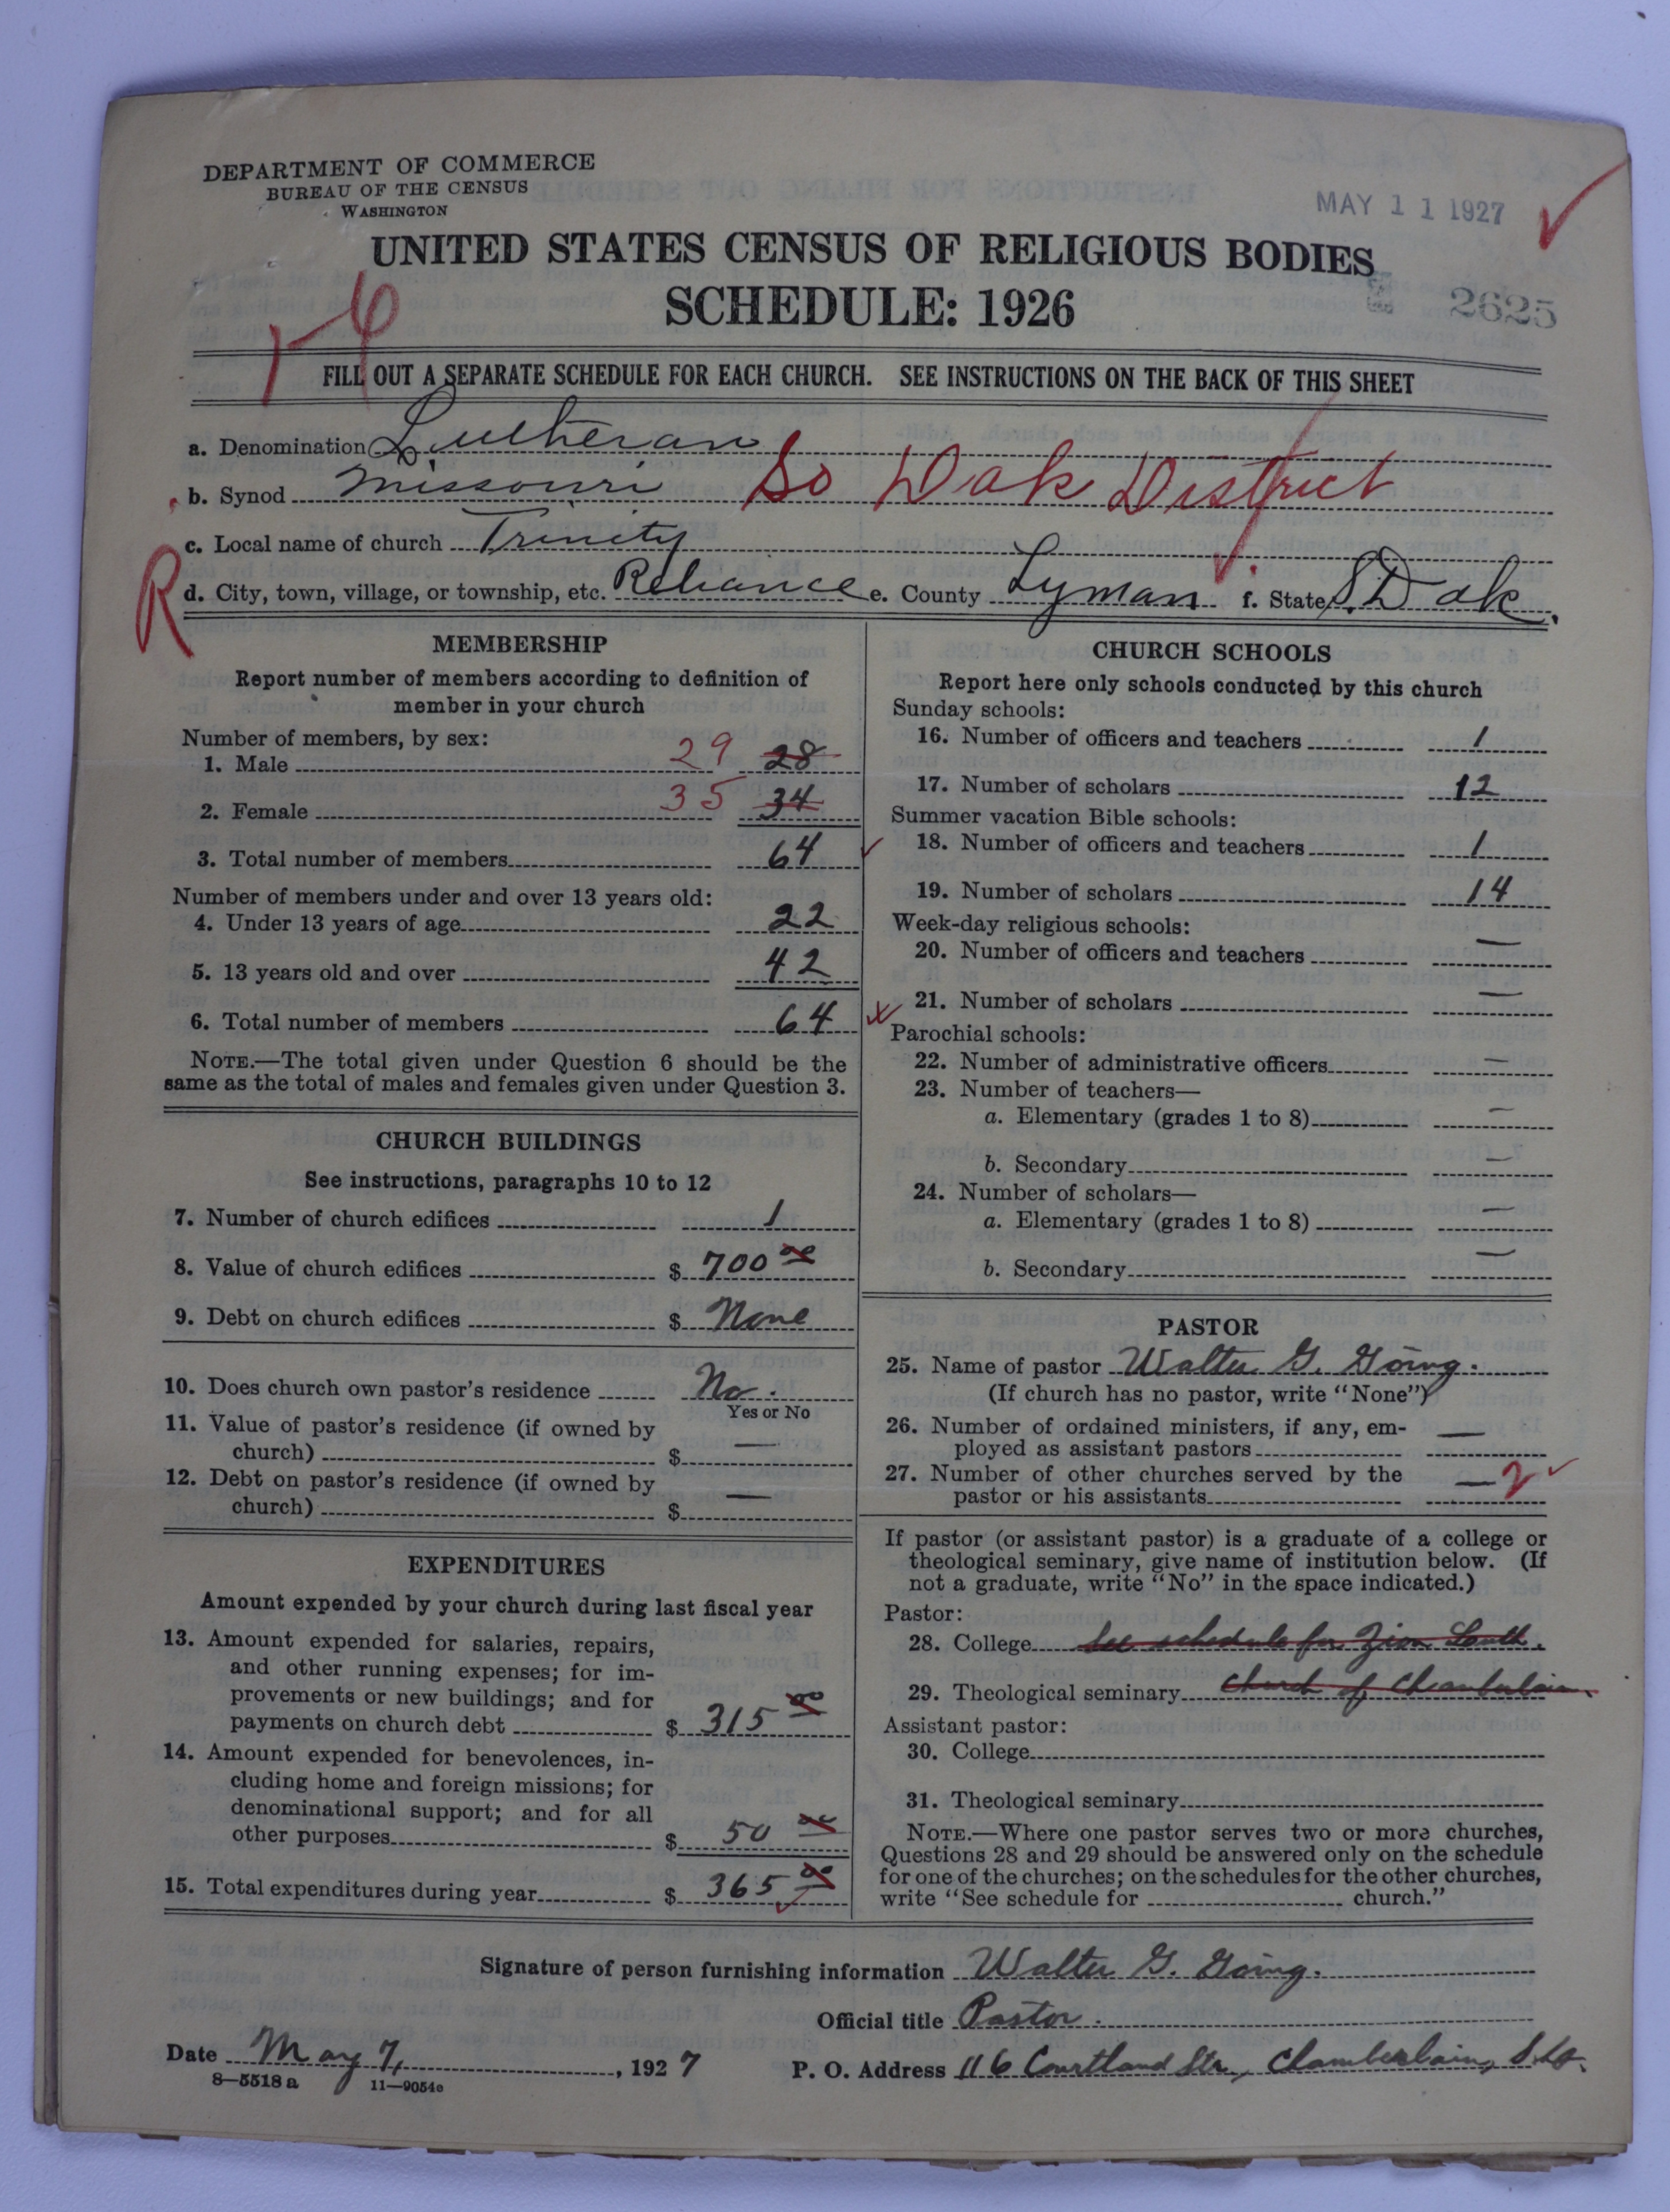 DEPARTMENT OF COMMERCE
BUREAU OF THE CENSUS
WASHINGTON
MAY 11 1927
UNITED STATES CENSUS OF RELIGIOUS BODIES
SCHEDULE: 1926
2625
FILL OUT A SEPARATE SCHEDULE FOR EACH CHURCH. SEE INSTRUCTIONS ON THE BACK OF THIS SHEET
a. Denomination Lutheran
b. Synod Missouri So Dak District
c. Local name of church Trinity
R
d. City, town, village, or township, etc. Reliance e. County Lyman f. State S. Dak.
MEMBERSHIP
Report number of members according to definition of
member in your church
Number of members, by sex:
1. Male 29 28
2. Female 35 34
3. Total number of members 64
Number of members under and over 13 years old:
4. Under 13 years of age 22
5. 13 years old and over 42
6. Total number of members 64
NOTE.—The total given under Question 6 should be the
same as the total of males and females given under Question 3.
CHURCH BUILDINGS
See instructions, paragraphs 10 to 12
7. Number of church edifices 1
8. Value of church edifices $ 700 00
9. Debt on church edifices $ None
10. Does church own pastor's residence No.
Yes or No
11. Value of pastor's residence (if owned by
church) $ —
12. Debt on pastor's residence (if owned by
church) $ —
EXPENDITURES
Amount expended by your church during last fiscal year
13. Amount expended for salaries, repairs,
and other running expenses; for im-
provements or new buildings; and for
payments on church debt $ 315 00
14. Amount expended for benevolences, in-
cluding home and foreign missions; for
denominational support; and for all
other purposes $ 50 00
15. Total expenditures during year $ 365 00
CHURCH SCHOOLS
Report here only schools conducted by this church
Sunday schools:
16. Number of officers and teachers 1
17. Number of scholars 12
Summer vacation Bible schools:
18. Number of officers and teachers 1
19. Number of scholars 14
Week-day religious schools:
20. Number of officers and teachers —
21. Number of scholars —
Parochial schools:
22. Number of administrative officers —
23. Number of teachers—
a. Elementary (grades 1 to 8) —
b. Secondary —
24. Number of scholars—
a. Elementary (grades 1 to 8) —
b. Secondary —
PASTOR
25. Name of pastor Walter G. Göing.
(If church has no pastor, write "None")
26. Number of ordained ministers, if any, em-
ployed as assistant pastors —
27. Number of other churches served by the
pastor or his assistants — 2
If pastor (or assistant pastor) is a graduate of a college or
theological seminary, give name of institution below. (If
not a graduate, write "No" in the space indicated.)
Pastor:
28. College See schedule for Zion Luth.
29. Theological seminary Church of Chamberlain.
Assistant pastor:
30. College
31. Theological seminary
NOTE.—Where one pastor serves two or more churches,
Questions 28 and 29 should be answered only on the schedule
for one of the churches; on the schedules for the other churches,
write "See schedule for church."
Signature of person furnishing information Walter G. Göing.
Official title Pastor.
Date May 7, 1927 P. O. Address 116 Courtland Str., Chamberlain, S. D.
8—5518 a 11—9054e